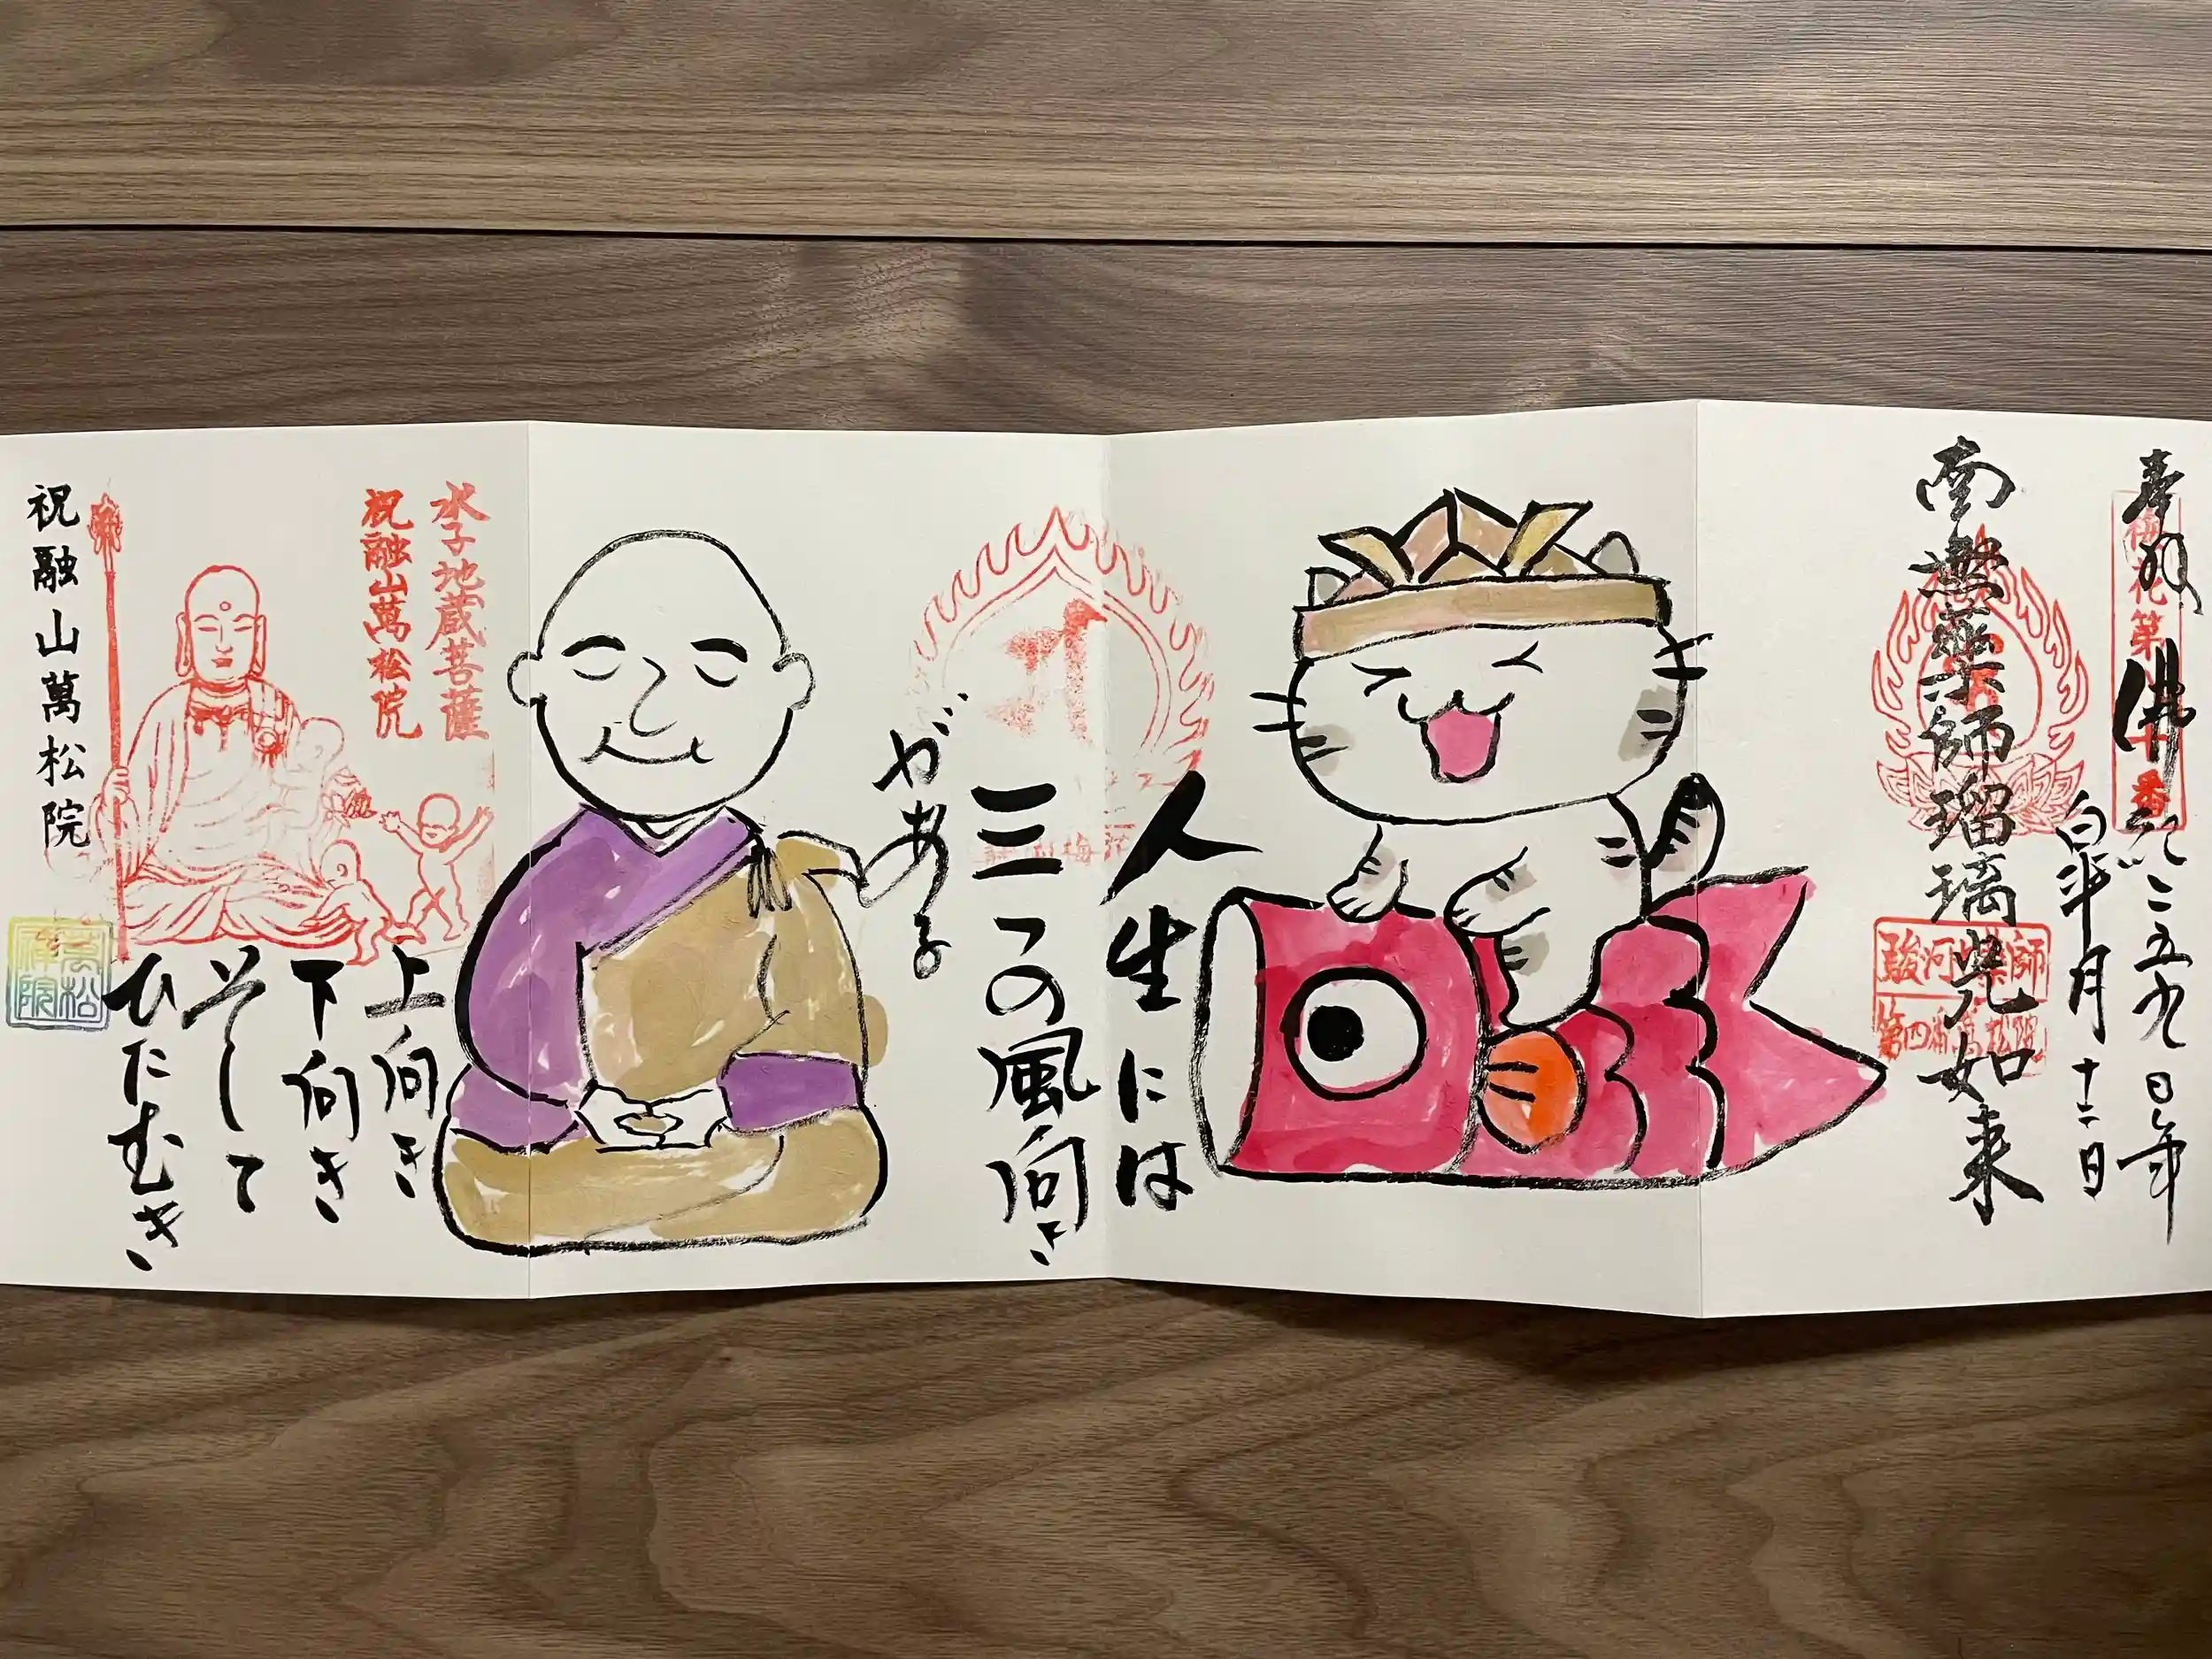 奉拝
南無薬師瑠璃光如来
駿河薬師
第四番萬松院
人生には
三つの風向き
がある
上向き
下向き
そして
ひたむき
水子地蔵菩薩
祝融山萬松院
祝融山萬松院
萬松
禅院